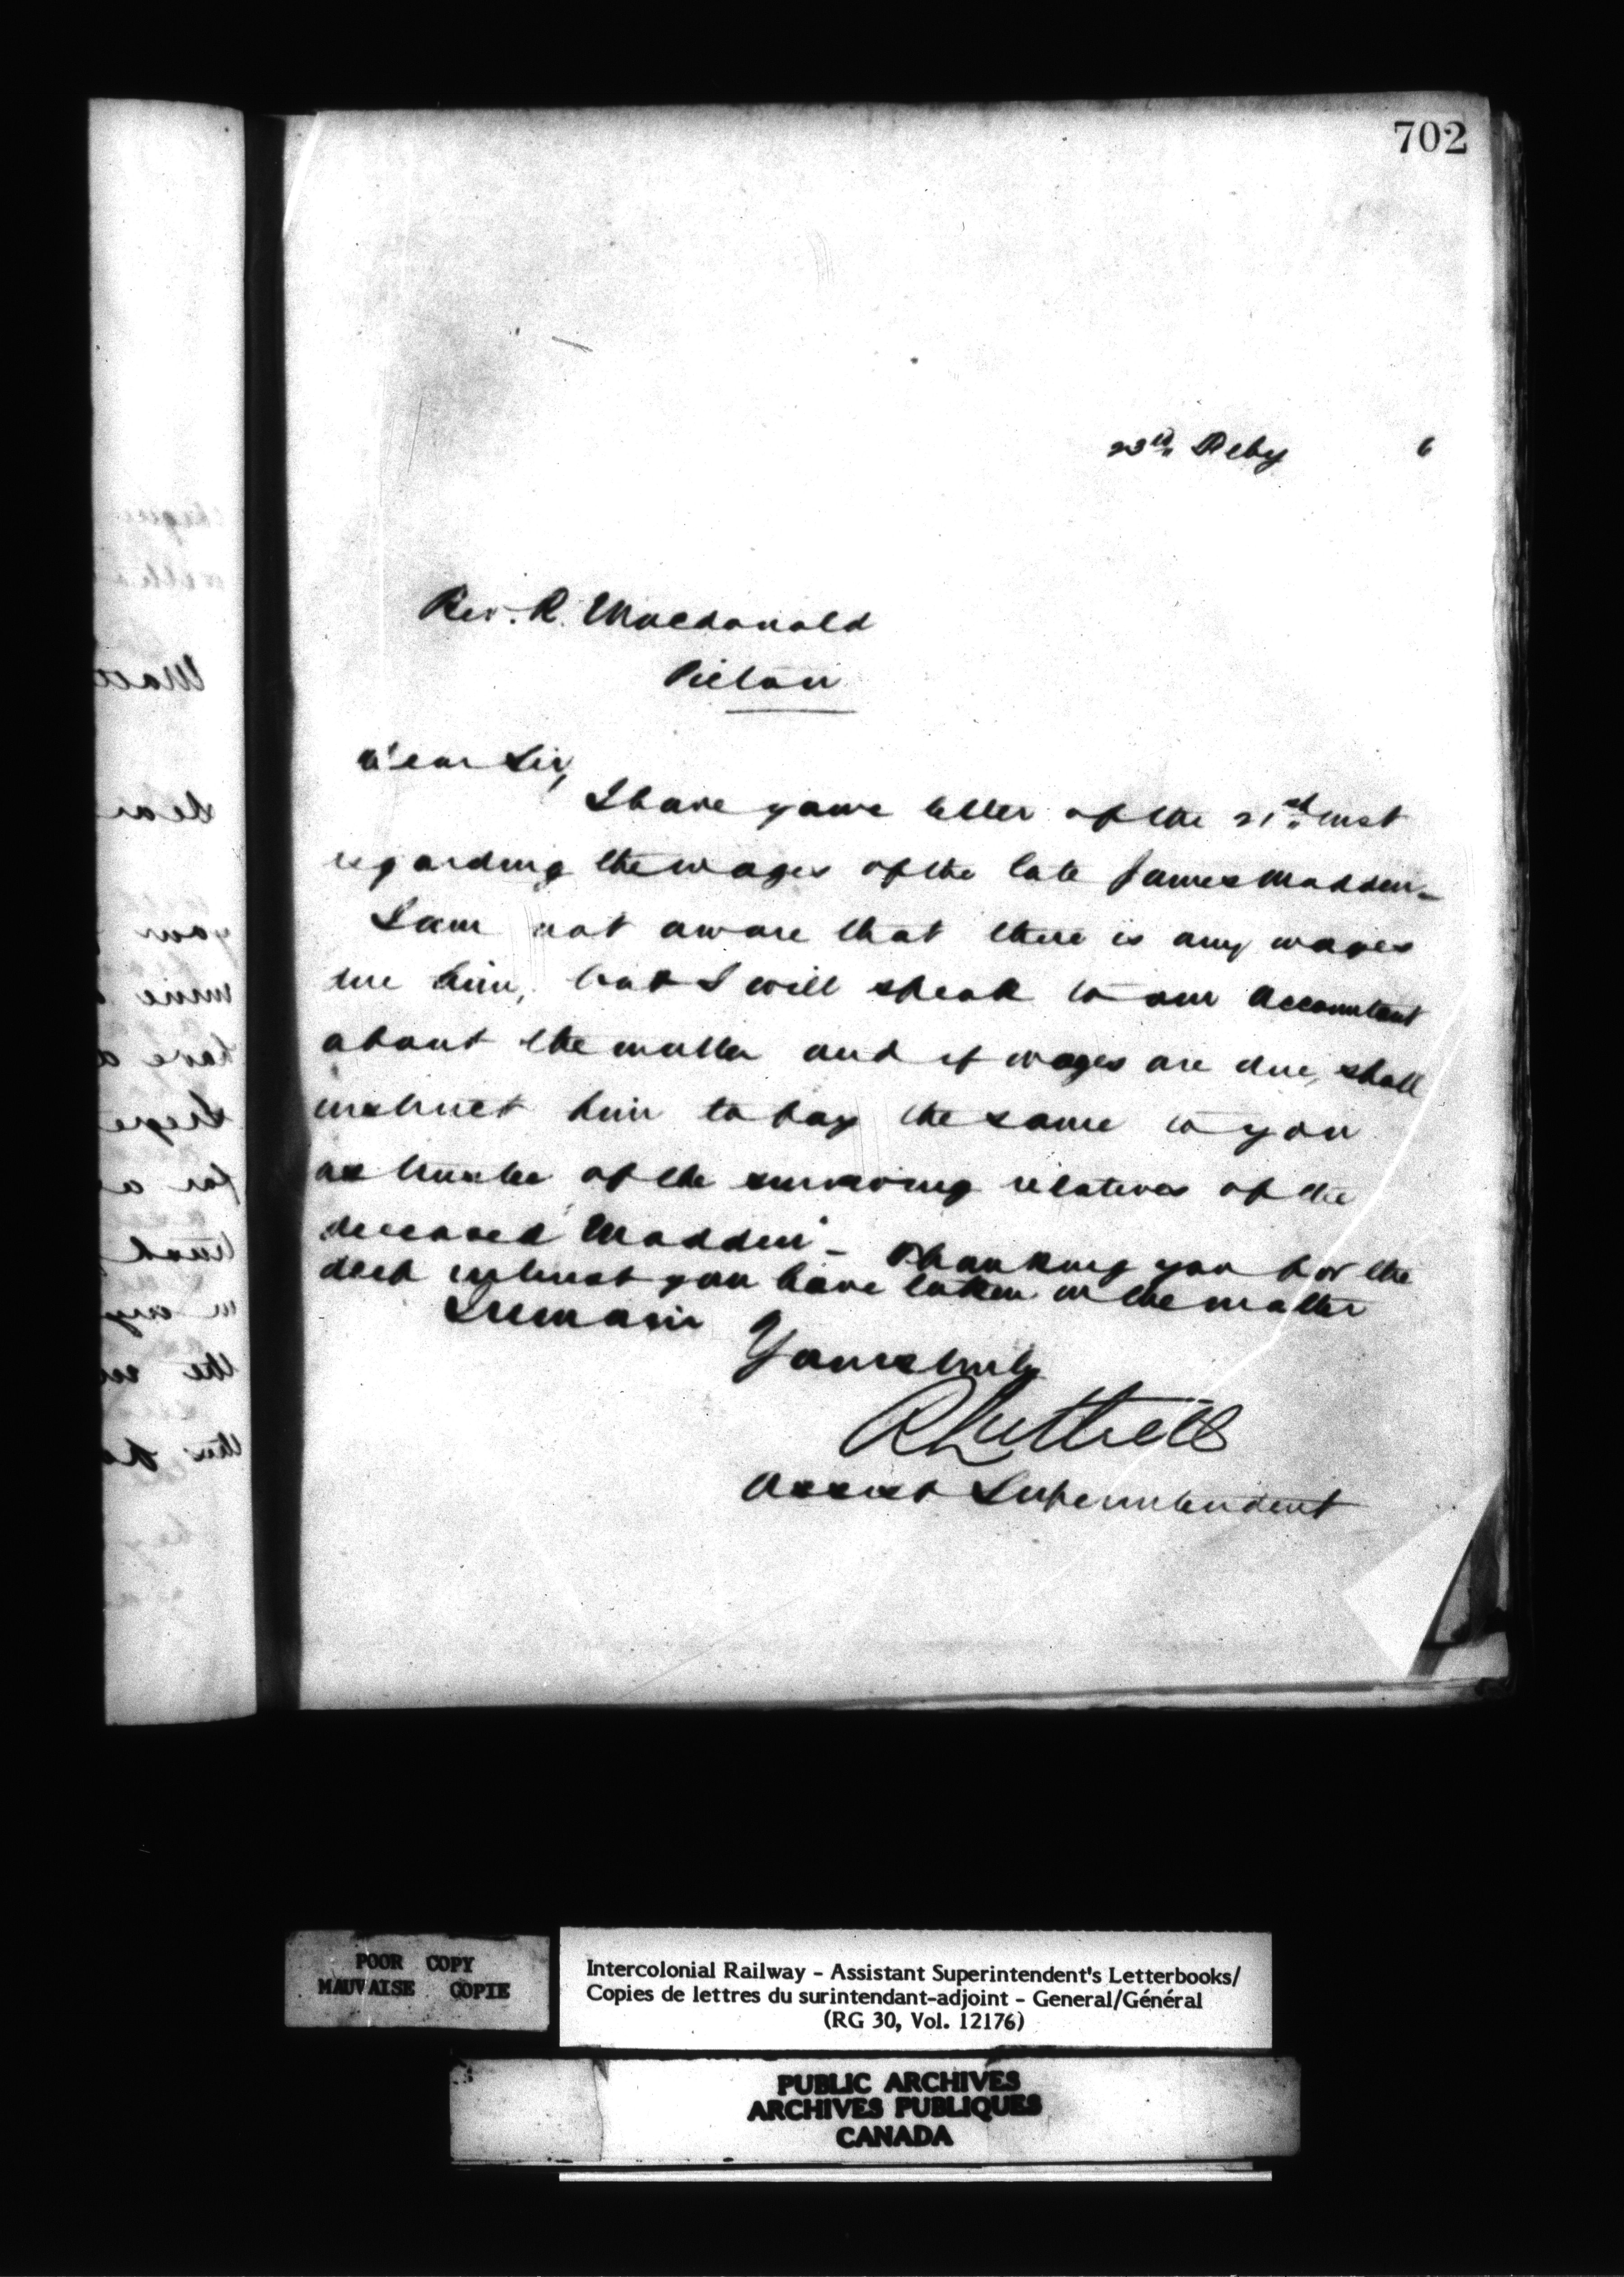 702
23rd Feby 6
Rev. R. Macdonald
Pictou
Dear Sir,
I have your letter of the 21st inst
regarding the wages of the late James Madden -
I am not aware that there is any wages
due him, but I will speak to our Accountant
about the matter and if wages are due, shall
instruct him to pay the same to you
as trustee of the surviving relatives of the
deceased Madden - Thanking you for the
deep interest you have taken in the matter
I remain
Yours truly
R Luttrell
Assist Superintendent
POOR COPY
MAUVAISE COPIE
Intercolonial Railway - Assistant Superintendent's Letterbooks/
Copies de lettres du surintendant-adjoint - General/Général
(RG 30, Vol. 12176)
PUBLIC ARCHIVES
ARCHIVES PUBLIQUES
CANADA